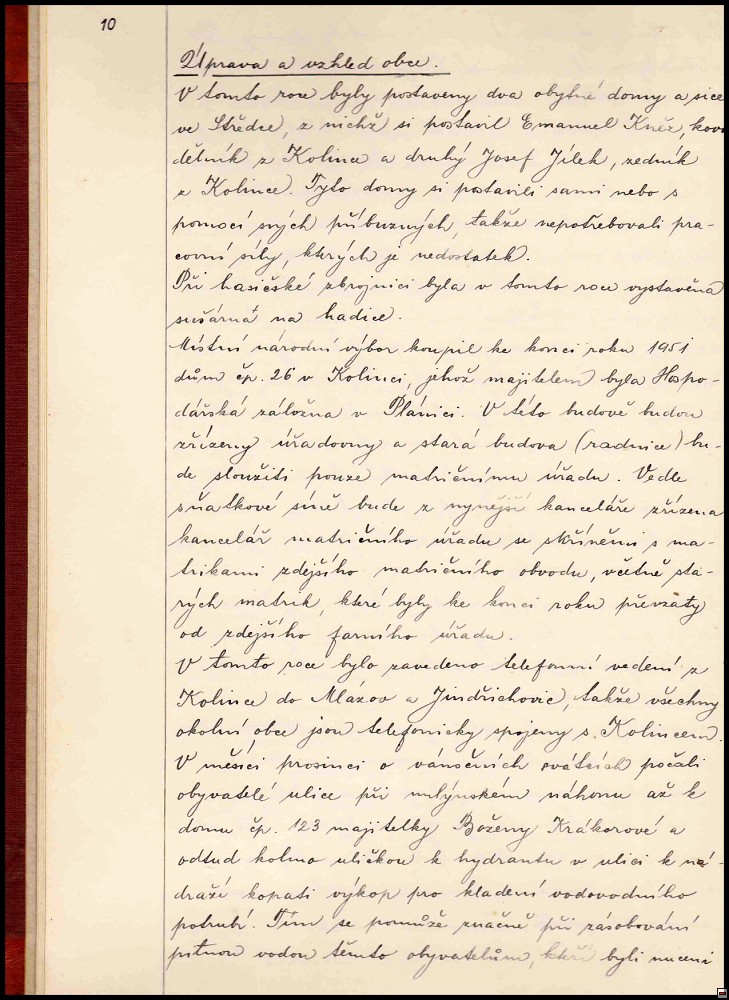 10
Úprava a vzhled obce.
V tomto roce byly postaveny dva obytné domy a sice
ve Středce, z nichž si postavil Emanuel Kněz, kovo
dělník z Kolince a druhý Josef Jílek, zedník
z Kolince. Tyto domy si postavili sami nebo s
pomocí svých příbuzných, takže nepotřebovali pra-
covní síly, kterých je nedostatek.
Při hasičské zbrojnici byla v tomto roce vystavěna
sušárna na hadice.
Místní národní výbor koupil ke konci roku 1951
dům čp. 26 v Kolinci, jehož majitelem byla Hospo-
dářská záložna v Plánici. V této budově budou
zřízeny úřadovny a stará budova (radnice) bu-
de sloužiti pouze matričnímu úřadu. Vedle
sňatkové síně bude z nynější kanceláře zřízena
kancelář matričního úřadu se skříněmi s ma-
trikami zdejšího matričního obvodu, včetně sta-
rých matrik, které byly ke konci roku převzaty
od zdejšího farního úřadu.
V tomto roce bylo zavedeno telefonní vedení z
Kolince do Mlázov a Jindřichovic, takže všechny
okolní obce jsou telefonicky spojeny s Kolincem.
V měsíci prosinci o vánočních svátcích počali
obyvatelé ulice při mlýnském náhonu až k
domu čp. 123 majitelky Boženy Krákorové a
odtud kolmo uličkou k hydrantu v ulici k ná-
draží kopati výkop pro kladení vodovodního
potrubí. Tím se pomůže značně při zásobování
pitnou vodou těmto obyvatelům, kteří byli nuceni